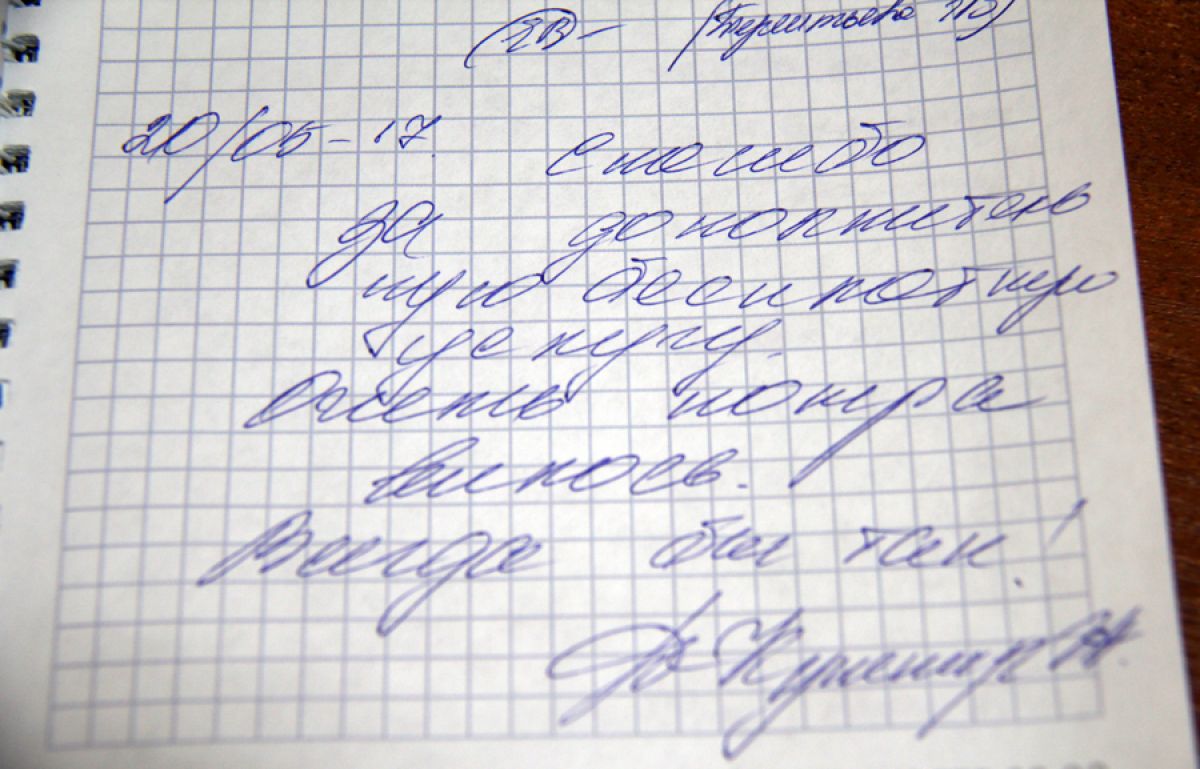 (Терентьева
20/05-17. Спасибо
за дополнитель
ную бесплатную
услугу.
Очень понра
вилось.
Всегда бы так!
Кушнир Н.